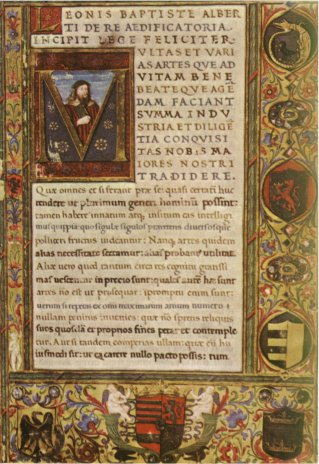 LEONIS BAPTISTE ALBER
TI DE RE AEDIFICATORIA.
INCIPIT LEGE FELICITER
VLTAS ET VARI
AS ARTES QVE AD
VITAM BENE
BEATE QVE AGĒ
DAM FACIANT
SVMMA INDV
STRIA ET DILIGĒ
TIA CONQVISI
TAS NOBIS MA
IORES NOSTRI
TRADIDERE.
Quæ omnes et si ferant præ se: quasi certatī huc
tendere ut plurimum generi hominū possint:
tamen habere innatum atq insitum eis intelligi
mus quippiā: quo singulæ singulos præ diuersosque
polliceri fructus uideantur: Nanq artes quidem
alias necessitate sectamur: alias probamus utilitate.
Aliæ uero quod tantum circa res cognitu gratissi
mas uersentur in precio sunt: quales autē hæ sunt
artes nō est ut prosequar: in promptu enim sunt:
uerum si repetas ex omi maximarum artium numero
nullam penitus inuenies: quæ nō spretis reliquis
suos quosdā et proprios fines petat et contemple
tur. Aut si tandem comperias ullam: quæ cū hu
iusmodi sit: ut ea carere nullo pacto possis: tum